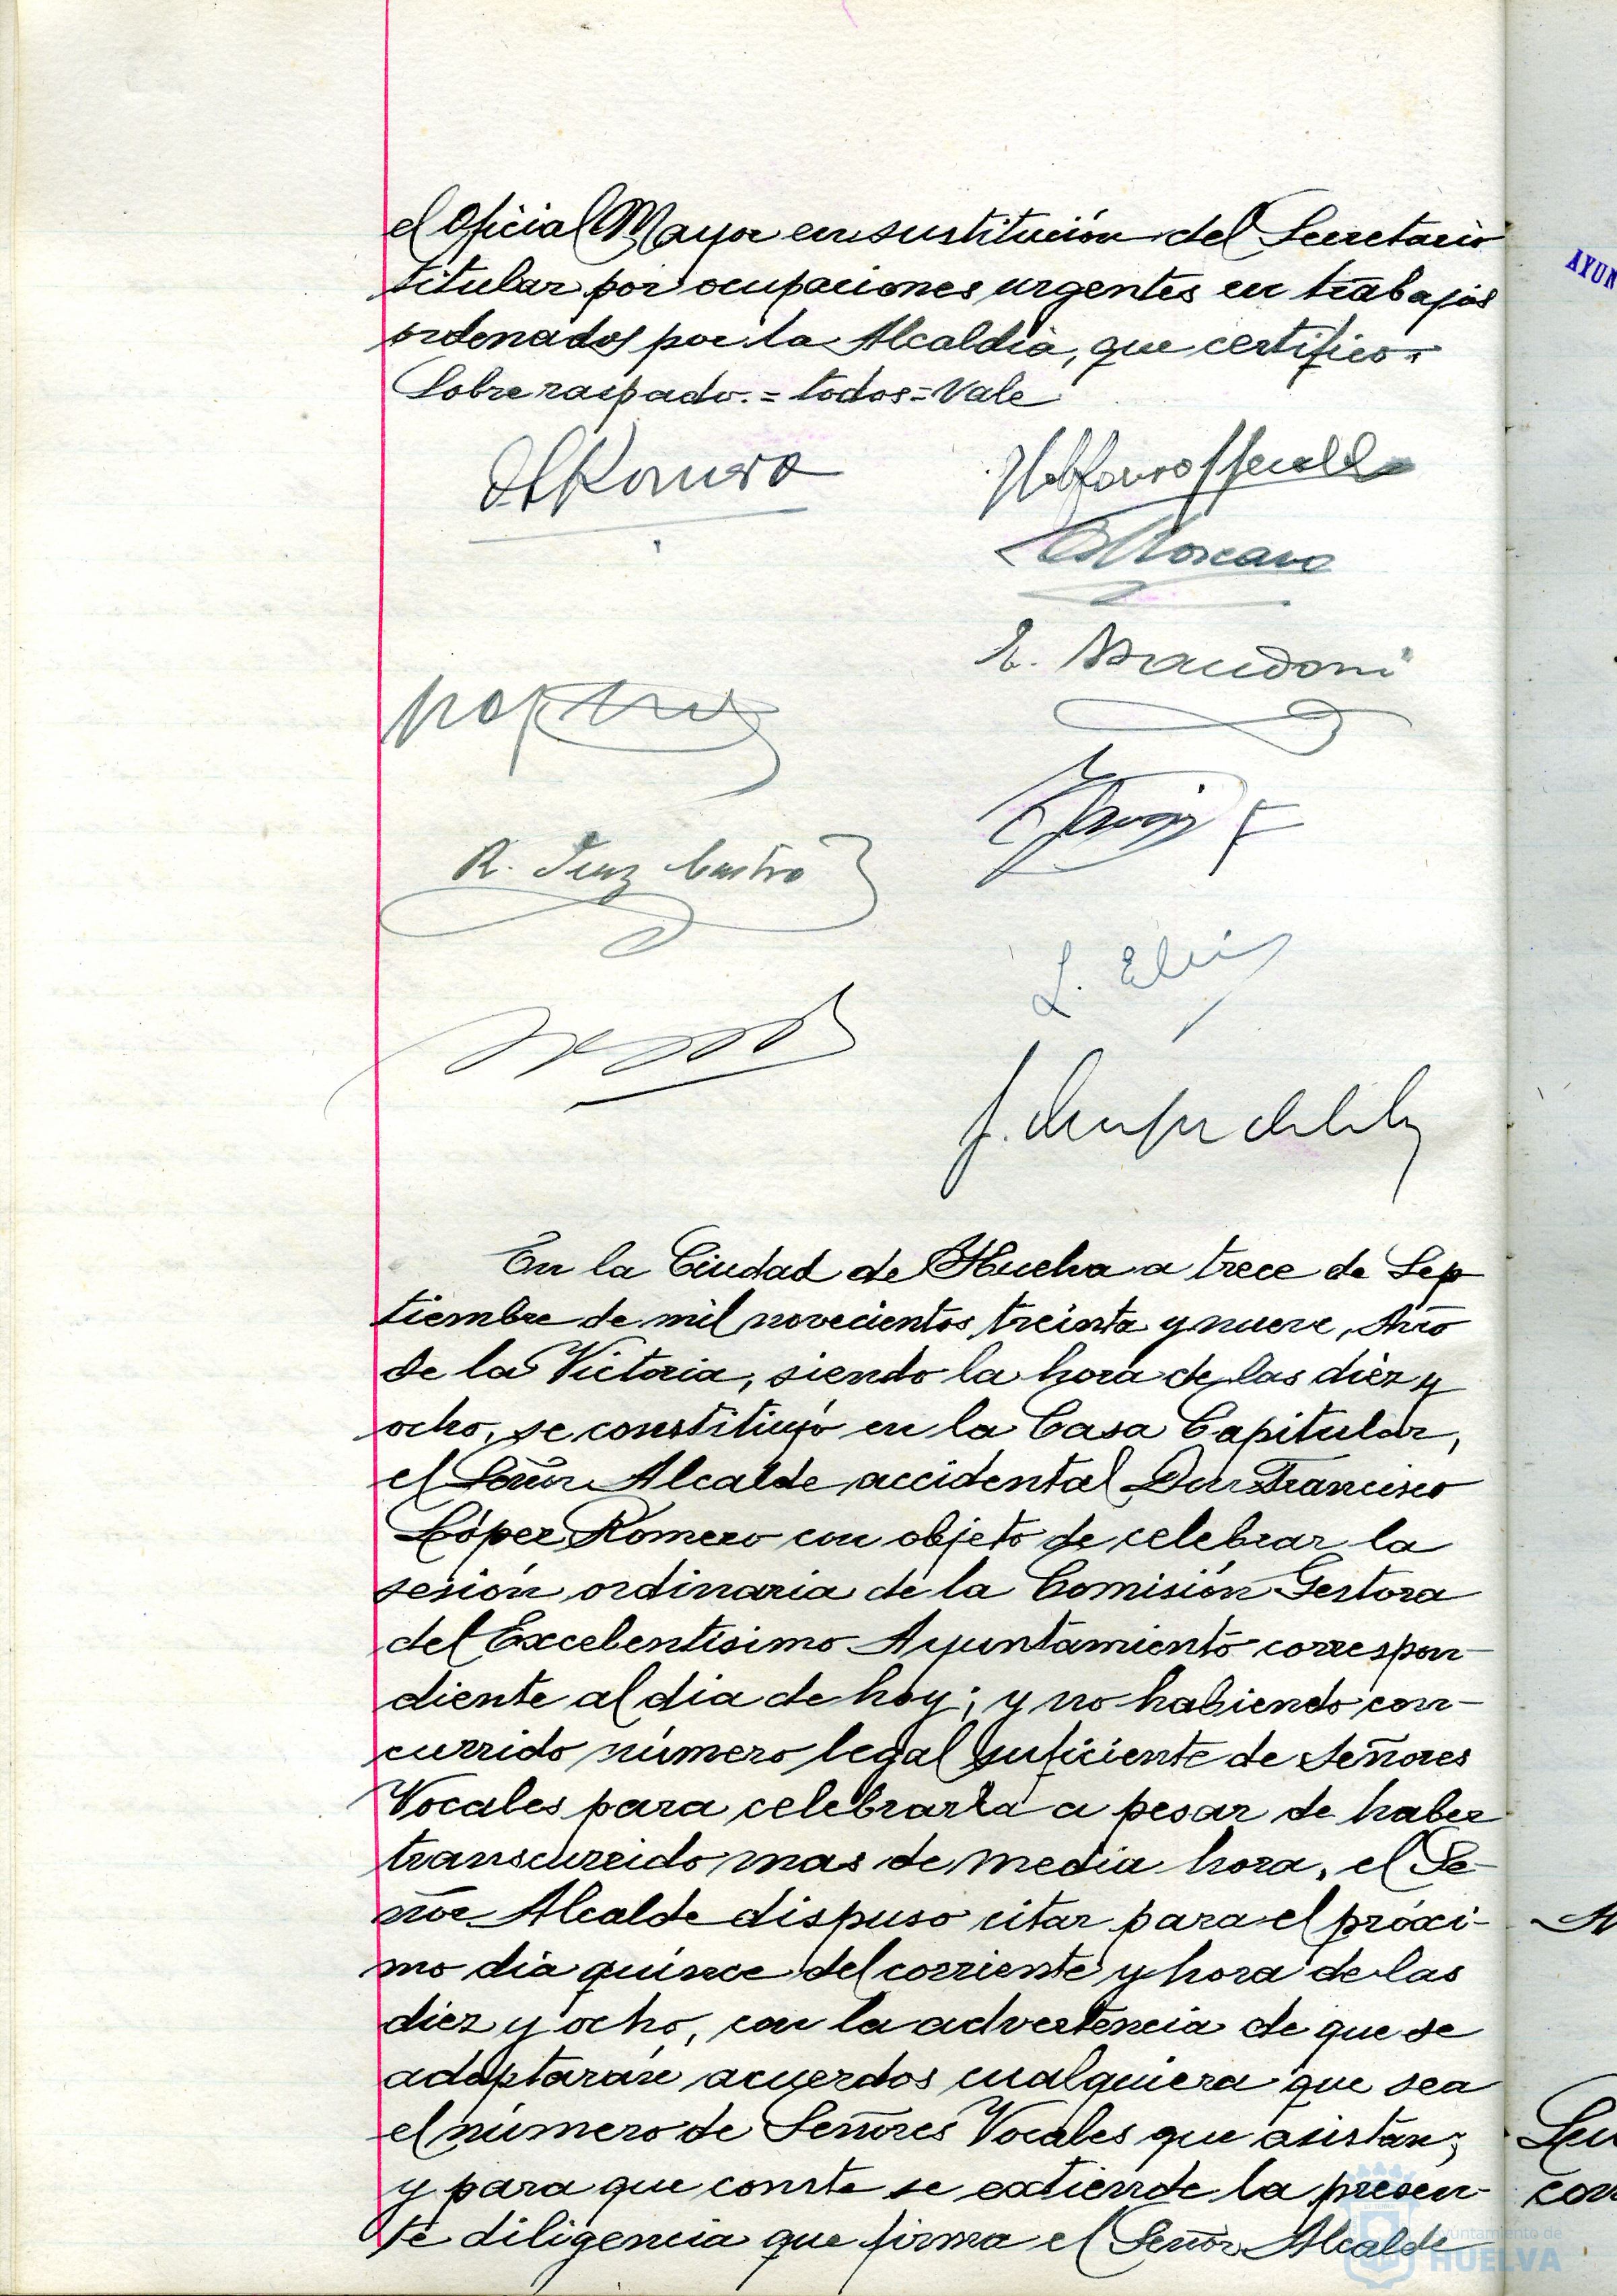 el Oficial Mayor en sustitución del Secretario
titular por ocupaciones urgentes en trabajos
ordenados por la Alcaldía, que certifico.
Sobre raspado.=todos=Vale
R. Díaz Castro
En la Ciudad de Huelva a trece de Sep
tiembre de mil novecientos treinta y nueve, Año
de la Victoria, siendo la hora de las diez y
ocho, se constituyó en la Casa Capitular,
el Señor Alcalde accidental Don Francisco
López Romero con objeto de celebrar la
sesión ordinaria de la Comisión Gestora
del Excelentísimo Ayuntamiento correspon-
diente al dia de hoy; y no habiendo con-
currido número legal suficiente de Señores
Vocales para celebrarla a pesar de haber
transcurrido mas de media hora, el Se-
ñor Alcalde dispuso citar para el próxi-
mo dia quince del corriente y hora de las
diez y ocho, con la advertencia de que se
adoptarán acuerdos cualquiera que sea
el número de Señores Vocales que asistan;
y para que conste se extiende la presen-
te diligencia que firma el Señor Alcalde
AYUN
Ayuntamiento de
HUELVA